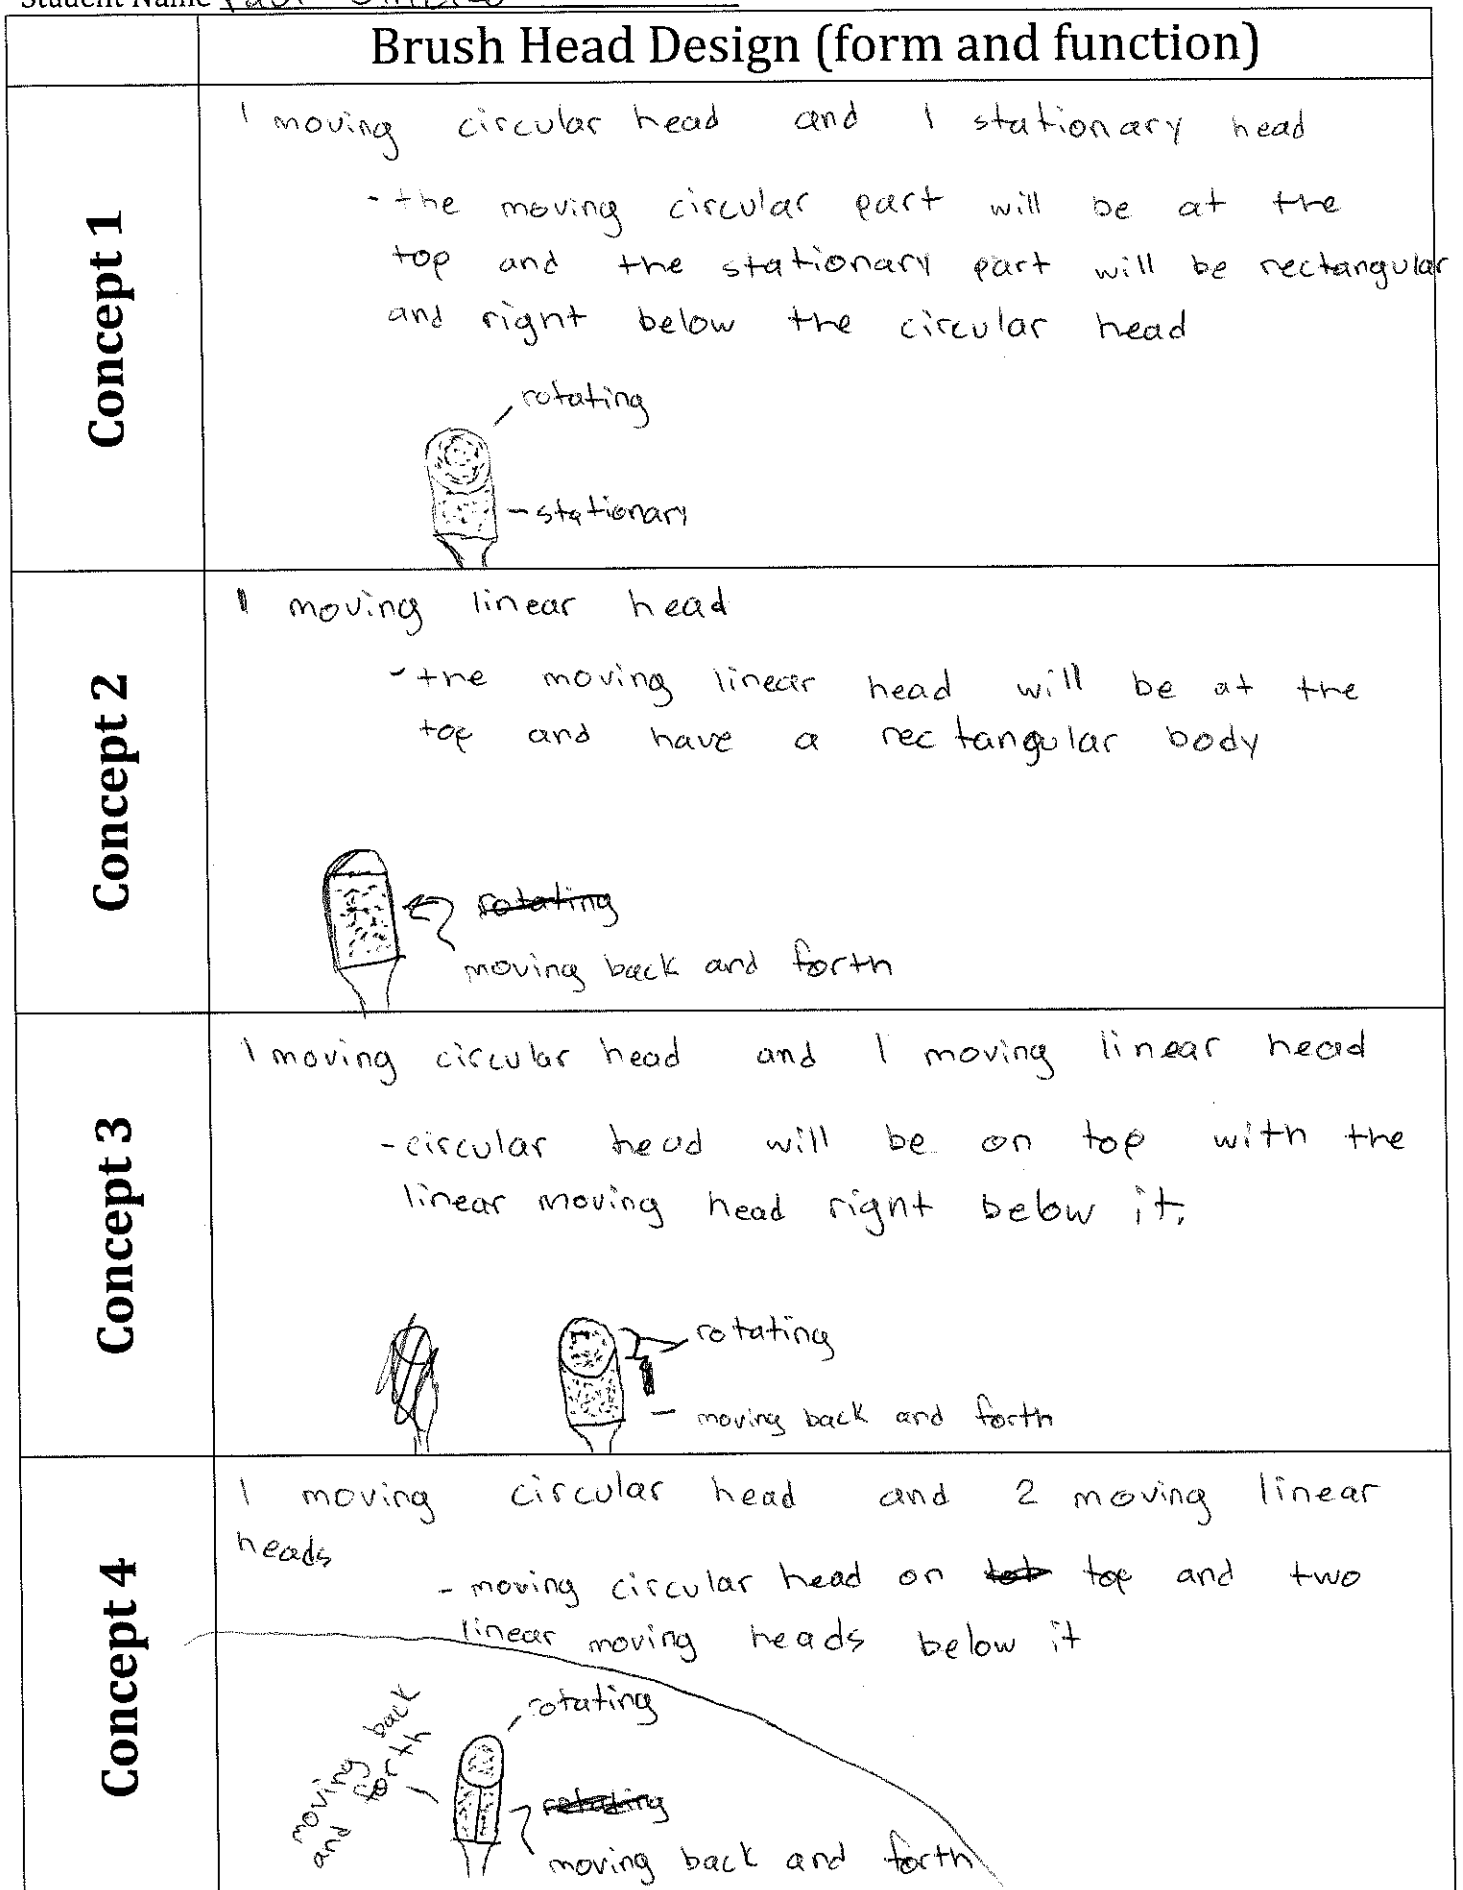 Student Name
Brush Head Design (form and function)
Concept 1
1 moving circular head and 1 stationary head
- the moving circular part will be at the
top and the stationary part will be rectangular
and right below the circular head
rotating
- stationary
Concept 2
1 moving linear head
- the moving linear head will be at the
top and have a rectangular body
rotating
moving back and forth
Concept 3
1 moving circular head and 1 moving linear head
- circular head will be on top with the
linear moving head right below it.
rotating
- moving back and forth
Concept 4
1 moving circular head and 2 moving linear
heads
- moving circular head on tot top and two
linear moving heads below it
rotating
moving back
and forth
rotating
moving back and forth